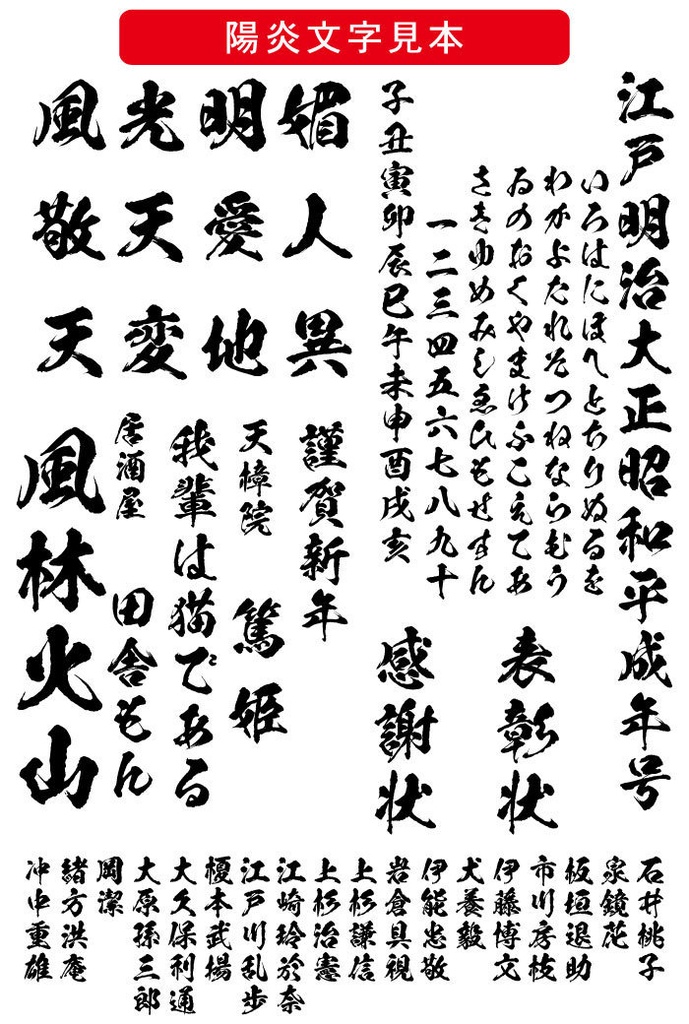 陽炎文字見本
江戸明治大正昭和平成年号
いろはにほへとちりぬるを
わかよたれそつねならむう
ゐのおくやまけふこえてあ
さきゆめみしゑひもせすん
一二三四五六七八九十
子丑寅卯辰巳午未申酉戌亥
表彰状
感謝状
媚人異
明愛地
光天変
風敬天
謹賀新年
天樟院
篤姫
我輩は猫である
居酒屋
田舎もん
風林火山
石井桃子
泉鏡花
板垣退助
市川房枝
伊藤博文
犬養毅
伊能忠敬
岩倉具視
上杉謙信
上杉治憲
江崎玲於奈
江戸川乱歩
榎本武揚
大久保利通
大原孫三郎
岡潔
緒方洪庵
沖中重雄